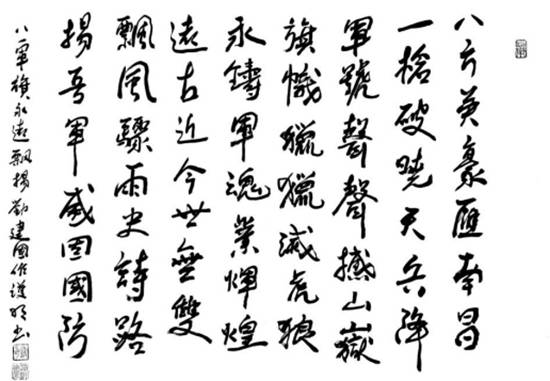 八方英豪匯南昌
一槍破曉天兵降
軍號聲聲撼山嶽
旗幟獵獵滅虎狼
永鑄軍魂業輝煌
遠古近今世無雙
飄風驟雨史詩路
揚吾軍威固國防
八一軍旗永遠飄揚 建國作 書